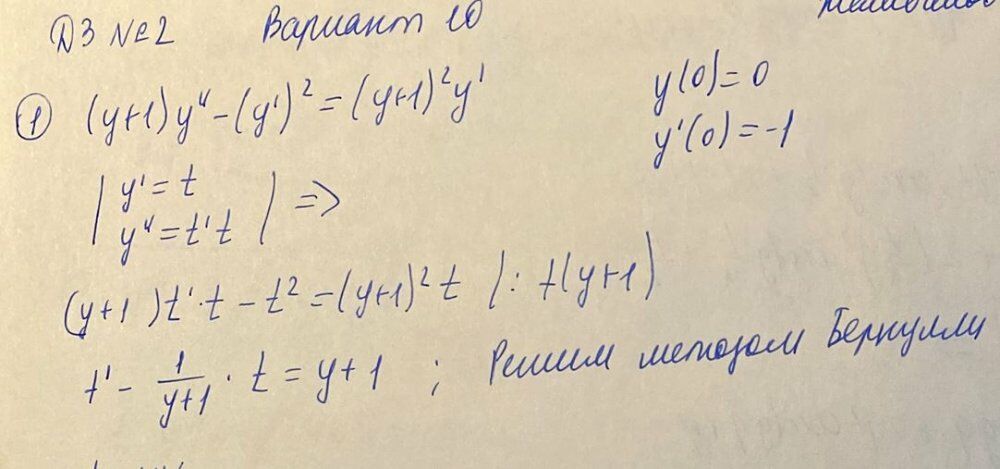 ДЗ №2 Вариант 10
① (y+1)y'' - (y')² = (y+1)²y' y(0)=0
y'(0)=-1
| y' = t
y'' = t't | =>
(y+1)t'·t - t² = (y+1)²t |: t(y+1)
t' - 1/(y+1) · t = y+1 ; Решим методом Бернулли